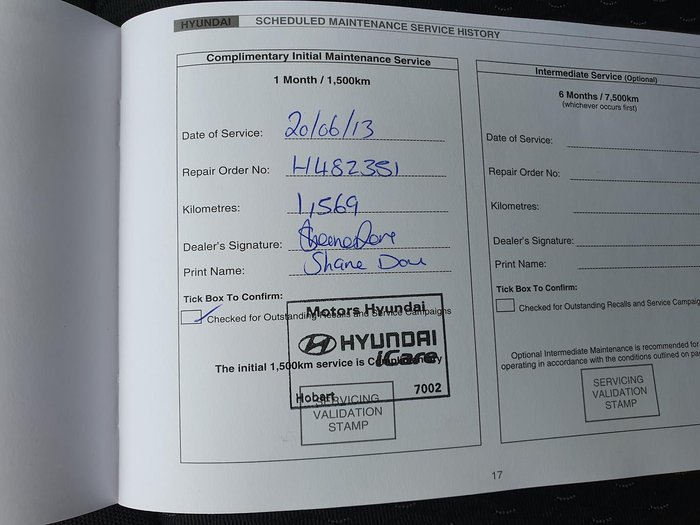 HYUNDAI SCHEDULED MAINTENANCE SERVICE HISTORY
Complimentary Initial Maintenance Service
1 Month / 1,500km
Date of Service: 20/06/13
Repair Order No: H482351
Kilometres: 1,569
Dealer's Signature:
Print Name: Shane
Tick Box To Confirm:
Checked for Outstanding Recalls and Service Campaigns
Motors Hyundai
HYUNDAI
iCare
The initial 1,500km service is Complimentary
Hobart 7002
SERVICING
VALIDATION
STAMP
Intermediate Service (Optional)
6 Months / 7,500km
(whichever occurs first)
Date of Service:
Repair Order No:
Kilometres:
Dealer's Signature:
Print Name:
Tick Box To Confirm:
Checked for Outstanding Recalls and Service
Optional Intermediate Maintenance is recommended for
operating in accordance with the conditions outlined on
SERVICING
VALIDATION
STAMP
17